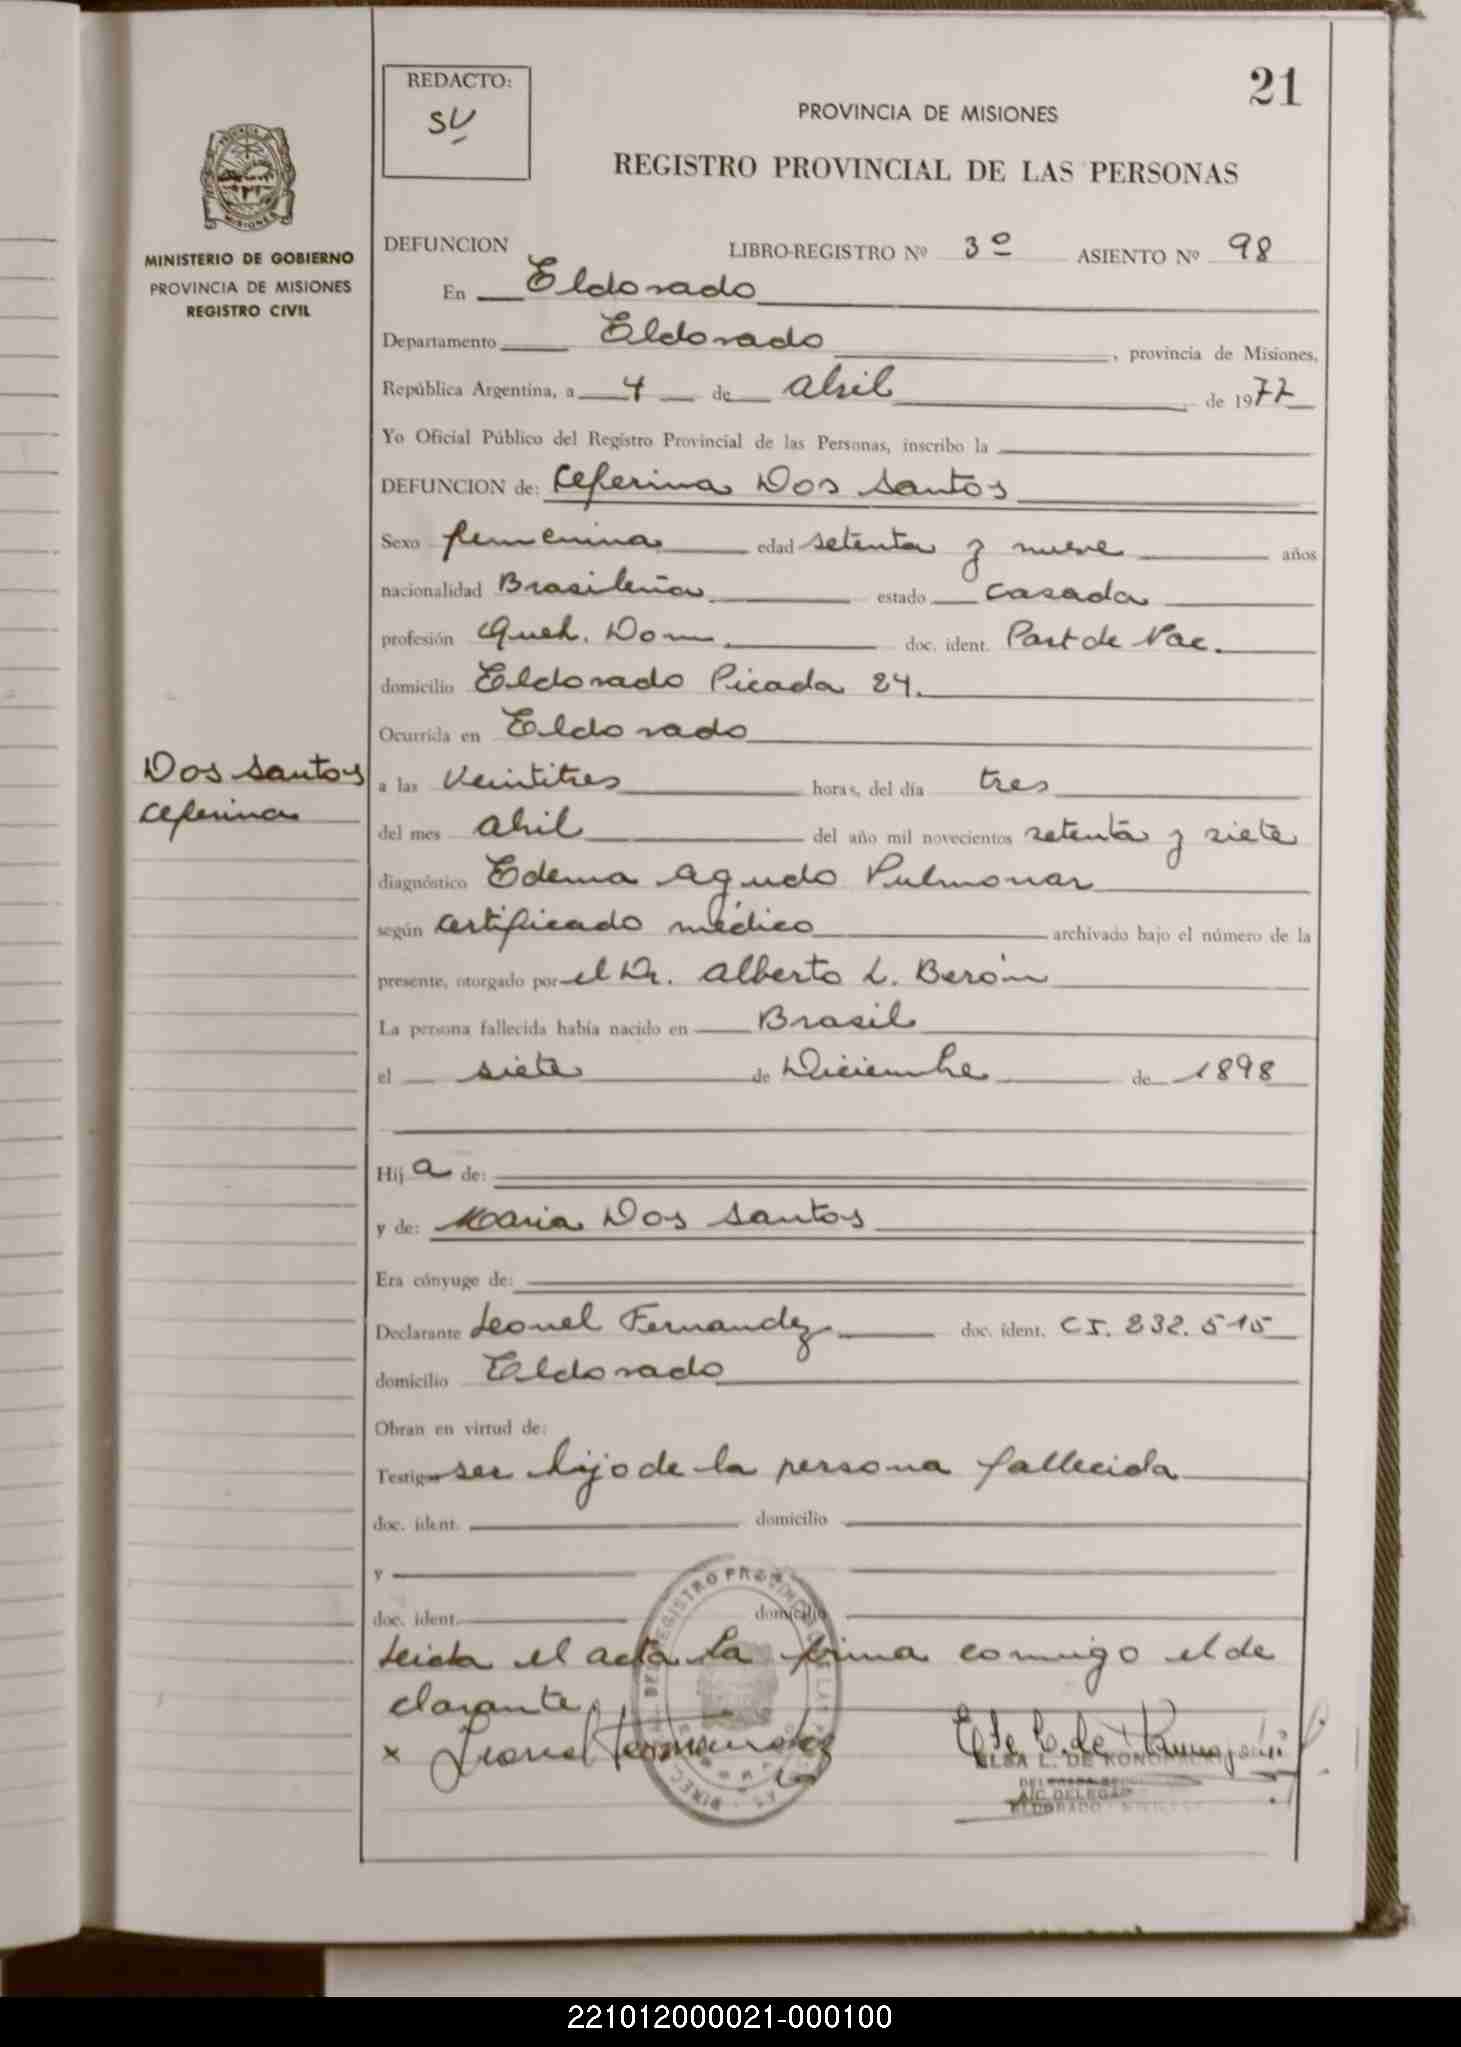 21
REDACTO:
SV
PROVINCIA DE MISIONES
REGISTRO PROVINCIAL DE LAS PERSONAS
MINISTERIO DE GOBIERNO
PROVINCIA DE MISIONES
REGISTRO CIVIL
DEFUNCION LIBRO-REGISTRO Nº 3º ASIENTO Nº 98
En Eldorado
Departamento Eldorado, provincia de Misiones,
República Argentina, a 4 de abril de 1977
Yo Oficial Público del Registro Provincial de las Personas, inscribo la
DEFUNCION de: Ceferina Dos Santos
Sexo femenina edad setenta y nueve años
nacionalidad Brasileña estado casada
profesión Queh. Dom. doc. ident. Part de Nac.
domicilio Eldorado Picada 24.
Ocurrida en Eldorado
Dos Santos
Ceferina
a las veintitres horas, del día tres
del mes abril del año mil novecientos setenta y siete
diagnóstico Edema Agudo Pulmonar
según certificado médico archivado bajo el número de la
presente, otorgado por el Dr. Alberto L. Berón
La persona fallecida había nacido en Brasil
el siete de Diciembre de 1898
Hij a de:
y de: Maria Dos Santos
Era cónyuge de:
Declarante Leonel Fernandez doc. ident. CI. 232.515
domicilio Eldorado
Obran en virtud de:
Testigos ser hijo de la persona fallecida
doc. ident. domicilio
y
doc. ident. domicilio
Leida el acta la firma comigo el de
clarante.
x Leonel Fernandez
ELSA L. DE
ELDORADO
221012000021-000100